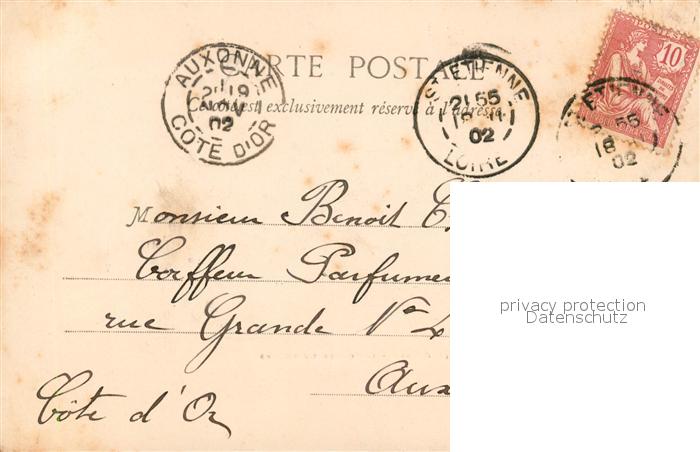 CARTE POSTALE
Ce côté est exclusivement réservé à l'adresse
AUXONNE
02
COTE D'OR
ST ETIENNE
21 55
02
LOIRE
10
ETIENNE
55
18
02
Monsieur Benoit
Coiffeur Parfumeu
rue Grande No 4
Aux
Côte d'Or
privacy protection
Datenschutz